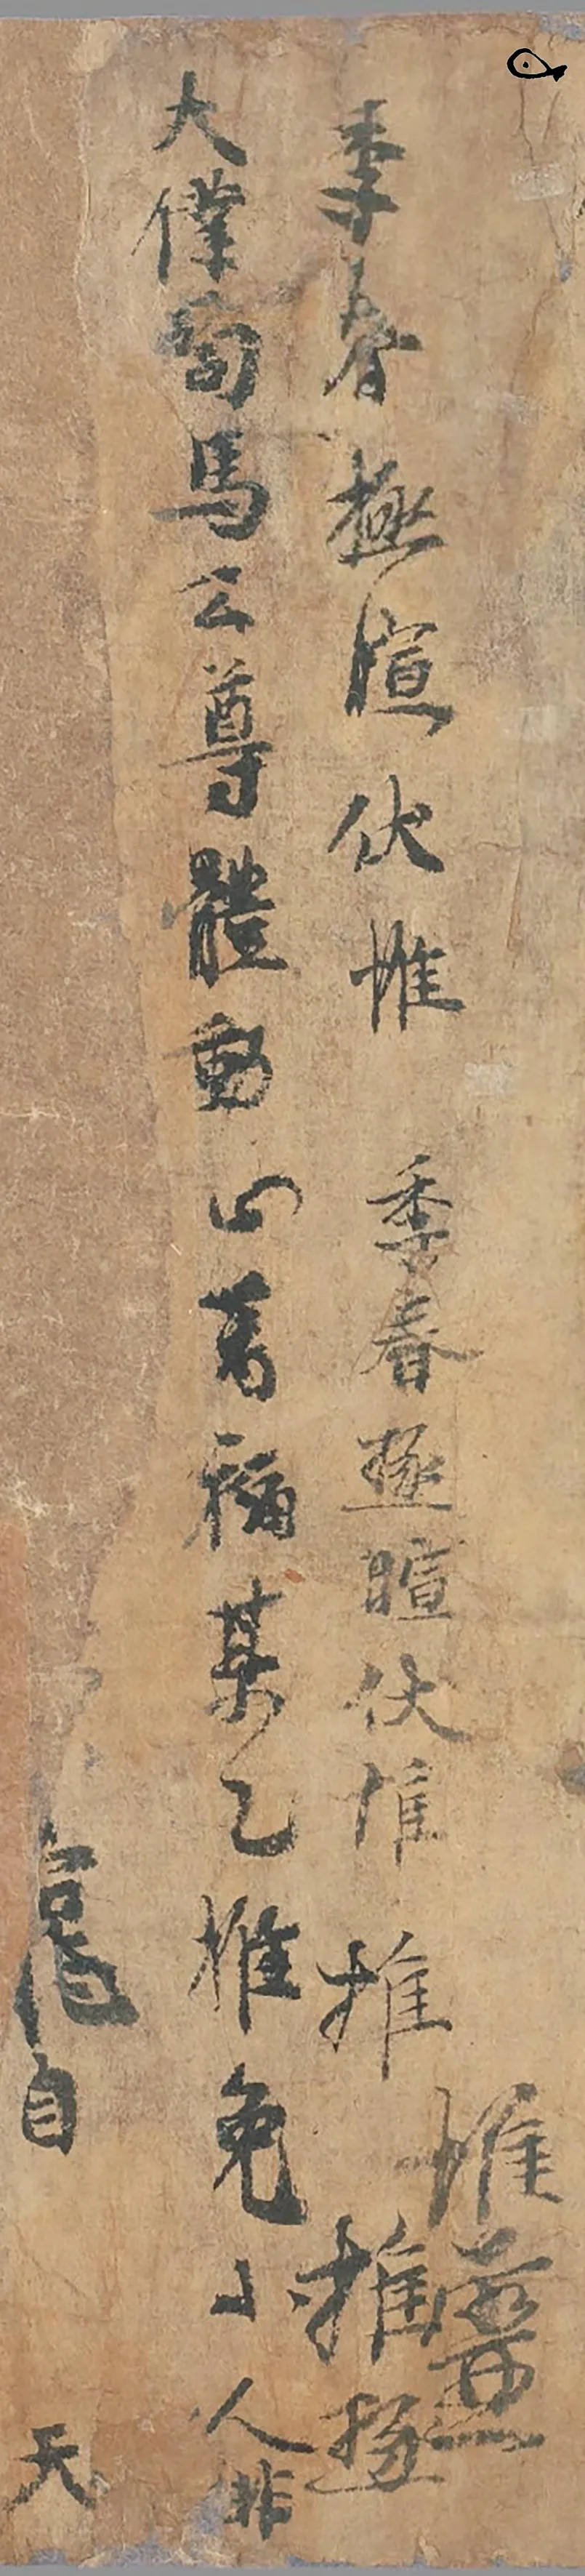 季春極暄伏惟 季春極暄伏惟推
惟
推
大僕司馬公尊體動心萬福某乙推免小人非
自
天